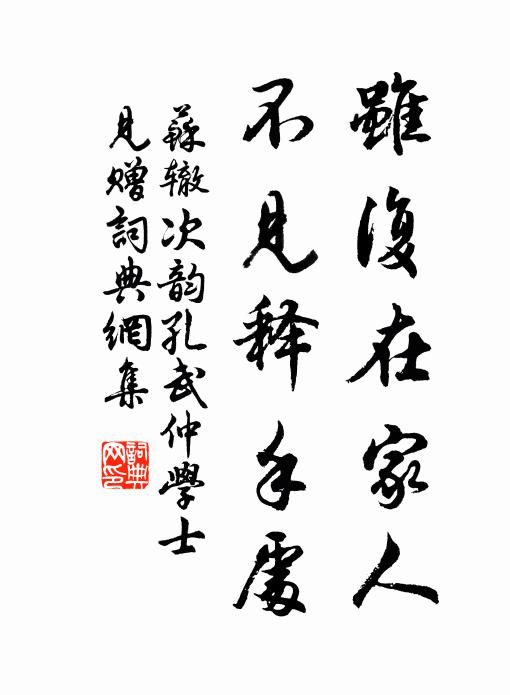 雖復在家人
不見释手處
蘇辙次韵孔武仲學士
見赠詞典網集
詞典網印